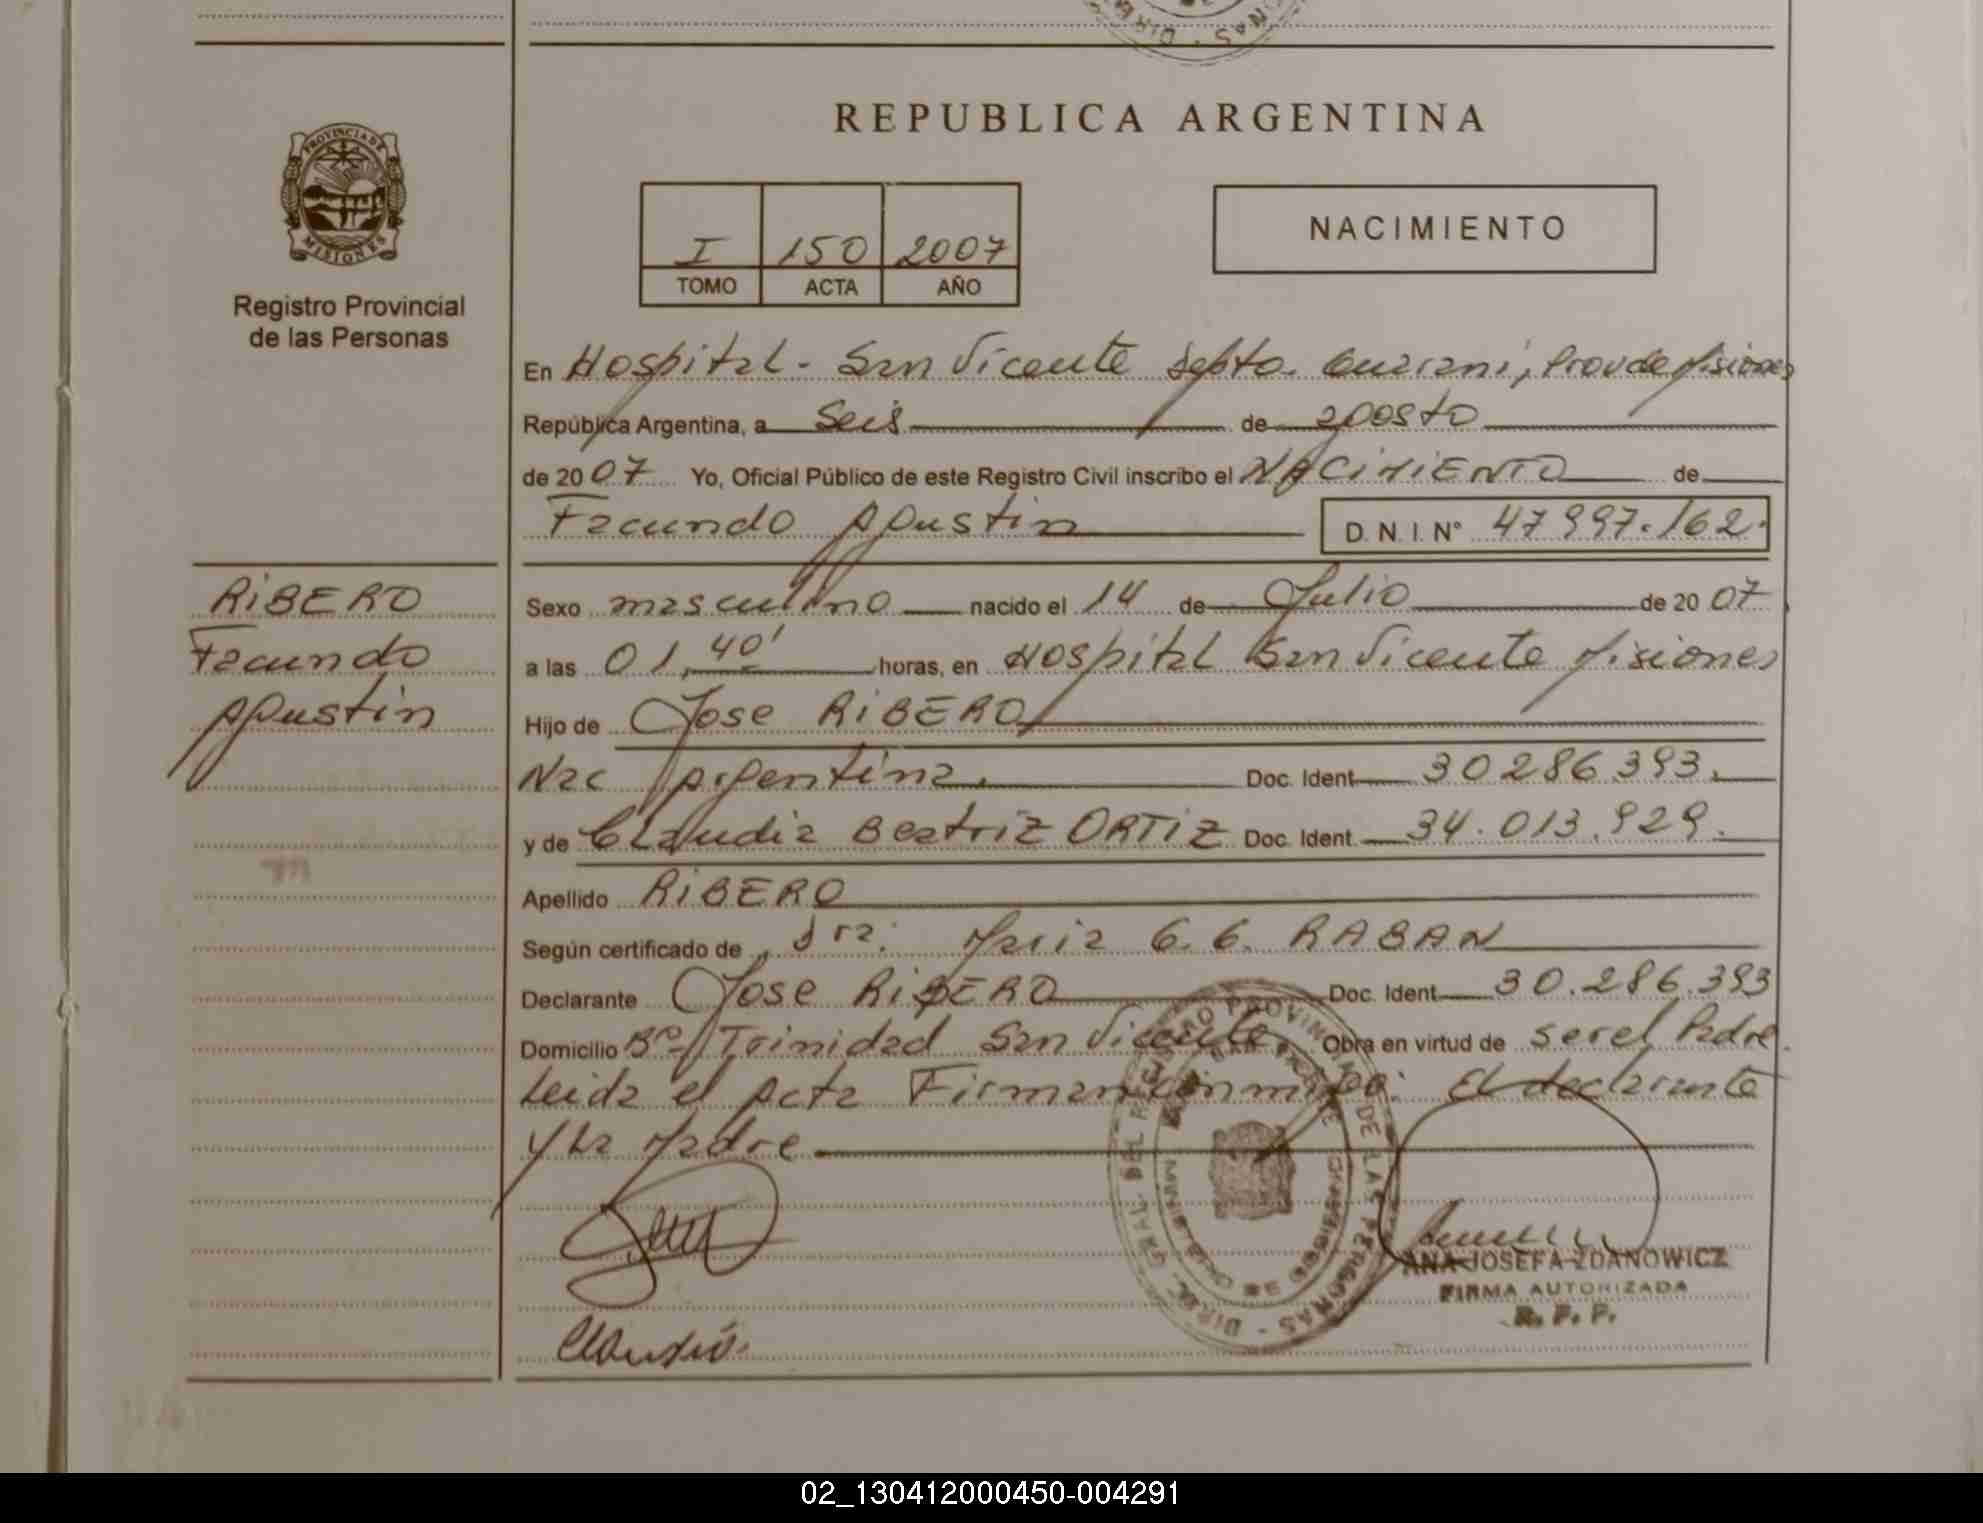 REPUBLICA ARGENTINA
PROVINCIA DE
MISIONES
Registro Provincial
de las Personas
I 150 2007
TOMO ACTA AÑO
NACIMIENTO
En Hospital - San Vicente Depto. Guarani, Prov de Misiones
República Argentina, a Seis de agosto
de 2007 Yo, Oficial Público de este Registro Civil inscribo el NACIMIENTO de
Facundo Agustin D.N.I.N° 47997.162.
RIBERO
Facundo
Agustin
Sexo masculino nacido el 14 de Julio de 2007
a las 01,40' horas, en Hospital San Vicente Misiones
Hijo de Jose RIBERO
Nac Argentina. Doc. Ident 30286393.
y de Claudia Beatriz ORTIZ Doc. Ident. 34.013.929.
Apellido RIBERO
Según certificado de Dra. Maria G. G. RABAN
Declarante Jose RIBERO Doc. Ident 30.286.393
Domicilio B° Trinidad San Vicente. Obra en virtud de ser el Padre.
Leida el Acta Firman conmigo: El declarante
y La Madre
Claudia.
ANA JOSEFA ZDANOWICZ
FIRMA AUTORIZADA
R. P. P.
02_130412000450-004291